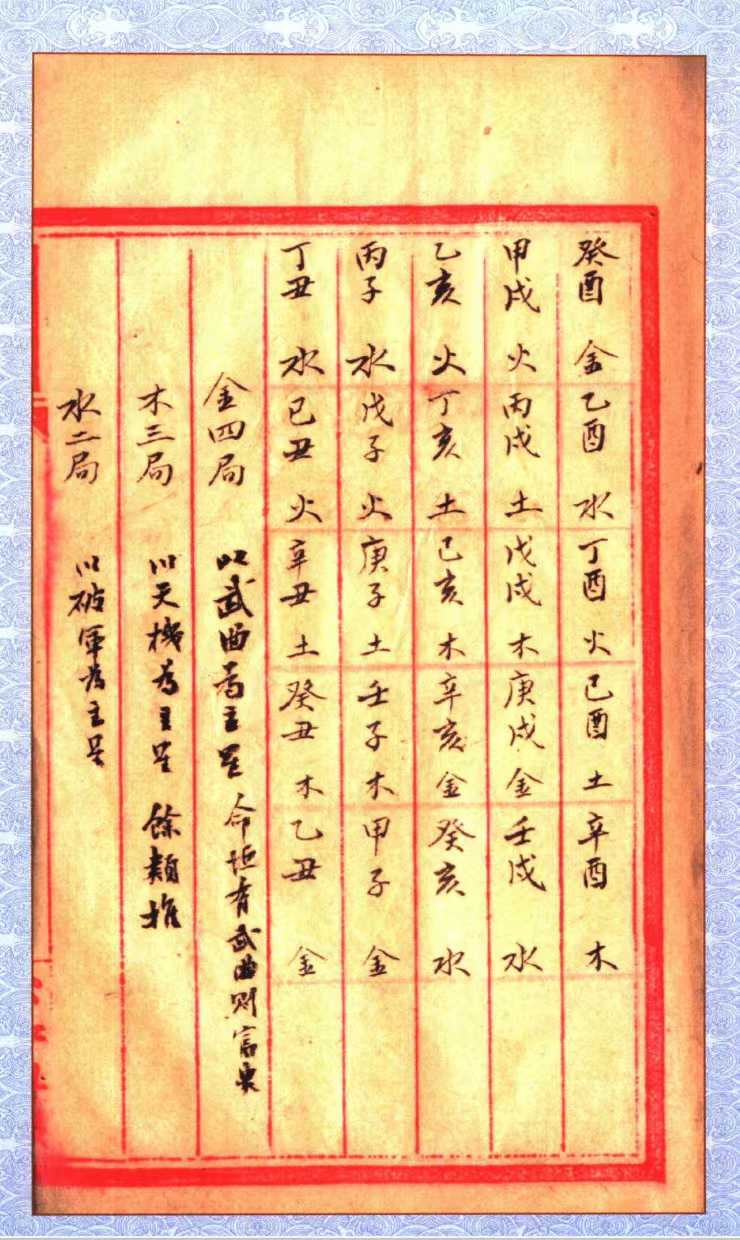 癸酉 金 乙酉 水 丁酉 火 己酉 土 辛酉 木
甲戌 火 丙戌 土 戊戌 木 庚戌 金 壬戌 水
乙亥 火 丁亥 土 己亥 木 辛亥 金 癸亥 水
丙子 水 戊子 火 庚子 土 壬子 木 甲子 金
丁丑 水 己丑 火 辛丑 土 癸丑 木 乙丑 金
金四局 以武曲为主星 命垣有武曲则富
木三局 以天機为主星 餘類推
水二局 以破軍为主星